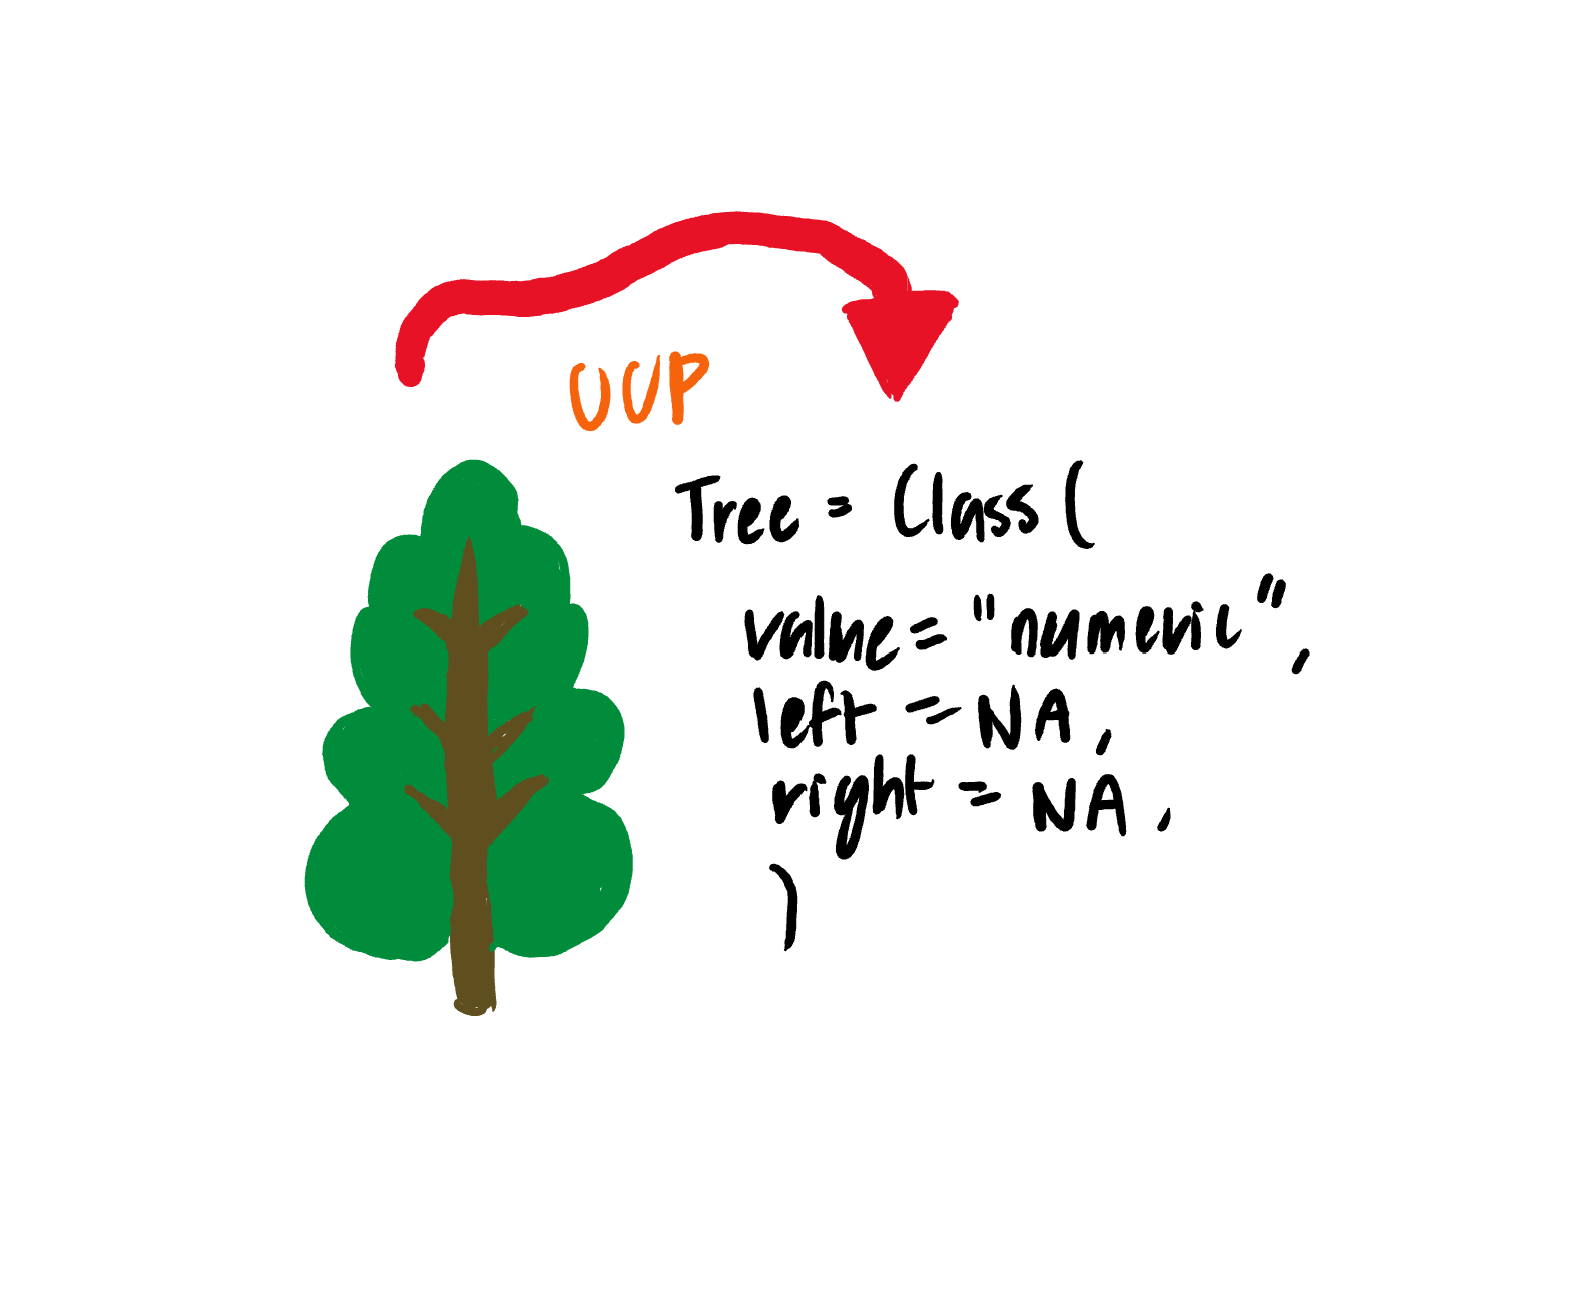 OOP
Tree = Class (
value = "numeric",
left = NA,
right = NA,
)